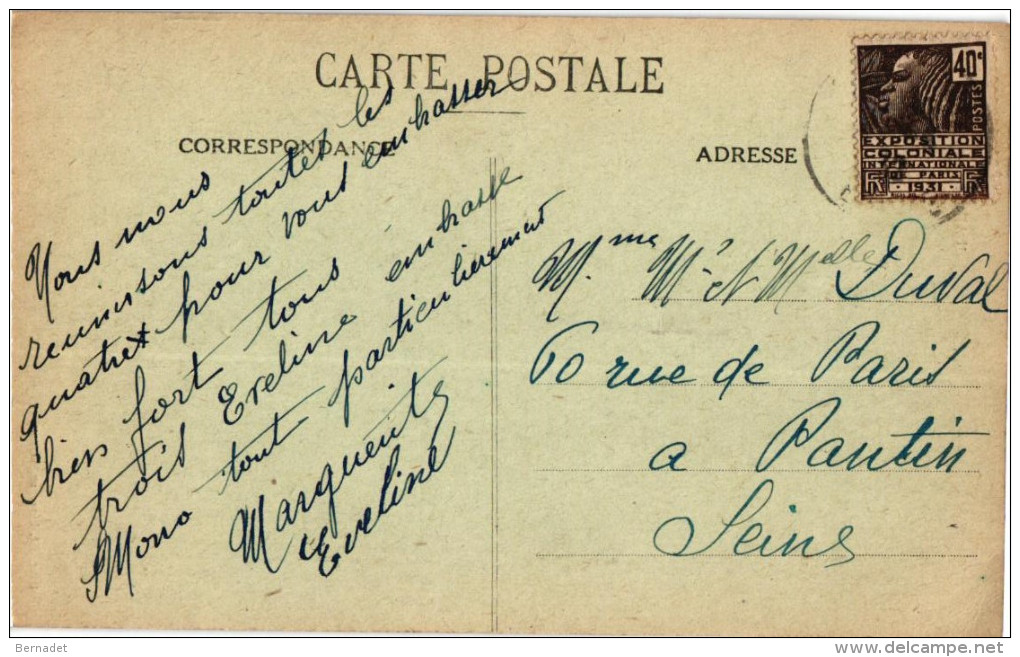 CARTE POSTALE
CORRESPONDANCE
ADRESSE
40c
POSTES
EXPOSITION
COLONIALE
INTERNATIONALE
DE PARIS
1931
Nous nous
reunissons toutes les
quatres pour vous embrasser
bien fort tous
trois Eveline embrasse
Mono tout particulierement
Marguerite
Eveline
Mme Mr et Melle Duval
60 rue de Paris
a Pantin
Seine
Bernadet
www.delcampe.net